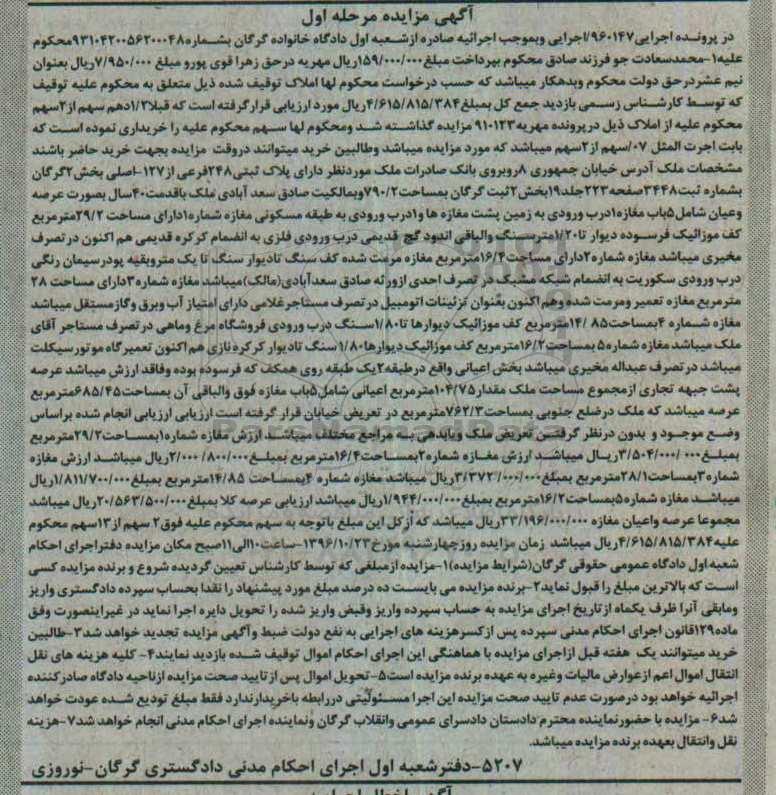 آگهی مزایده مرحله اول
در پرونده اجرایی۹۶۰۱۴۷/اجرایی وبموجب اجرائیه صادره ازشعبه اول دادگاه خانواده گرگان بشماره۹۳۱۰۴۲۰۰۵۶۲۰۰۰۴۸محکوم
علیه۱-محمدسعادت جو فرزند صادق محکوم بپرداخت مبلغ۱۵۹/۰۰۰/۰۰۰ریال مهریه درحق زهرا قوی پورو مبلغ ۷/۹۵۰/۰۰۰ریال بعنوان
نیم عشردرحق دولت محکوم وبدهکار میباشد که حسب درخواست محکوم لها املاک توقیف شده ذیل متعلق به محکوم علیه توقیف
که توسط کارشناس رسمی بازدید جمع کل بمبلغ۴/۶۱۵/۸۱۵/۳۸۴ریال مورد ارزیابی قرارگرفته است که قبلا۱/۲دهم سهم از۲سهم
محکوم علیه از املاک ذیل درپرونده مهریه۹۱۰۱۲۳ مزایده گذاشته شد ومحکوم لها سهم محکوم علیه را خریداری نموده است که
بابت اجرت المثل ۰۷/سهم از۲سهم میباشد که مورد مزایده میباشد وطالبین خرید میتوانند دروقت مزایده بجهت خرید حاضر باشند
مشخصات ملک آدرس خیابان جمهوری ۸روبروی بانک صادرات ملک موردنظر دارای پلاک ثبتی۲۴۸فرعی از۱۲۷-اصلی بخش۲گرگان
بشماره ثبت۳۴۴۸صفحه۲۲۳جلد۱۹بخش۲ثبت گرگان بمساحت۷۹۰/۲وبمالکیت صادق سعد آبادی ملک باقدمت۴۰سال بصورت عرصه
وعیان شامل۵باب مغازه۱درب ورودی به زمین پشت مغازه ها و۱درب ورودی به طبقه مسکونی مغازه شماره۱دارای مساحت ۲۹/۲مترمربع
کف موزائیک فرسوده دیوار تا۱/۲۰مترسنگ والباقی اندود گچ قدیمی درب ورودی فلزی به انضمام کرکره قدیمی هم اکنون در تصرف
مخیری میباشد مغازه شماره۲دارای مساحت۱۶/۴مترمربع مغازه مرمت شده کف سنگ تادیوار سنگ تا یک متروبقیه پودرسیمان رنگی
درب ورودی سکوریت به انضمام شبکه مشبک در تصرف احدی ازورثه صادق سعدآبادی(مالک)میباشد مغازه شماره۳دارای مساحت ۲۸
مترمربع مغازه تعمیر ومرمت شده وهم اکنون بعنوان تزئینات اتومبیل در تصرف مستاجرغلامی دارای امتیاز آب وبرق وگازمستقل میباشد
مغازه شماره ۴بمساحت۸۵ /۱۴مترمربع کف موزائیک دیوارها تا۱/۸۰سنگ درب ورودی فروشگاه مرغ وماهی در تصرف مستاجر آقای
ملک میباشد مغازه شماره۵ بمساحت۱۶/۲مترمربع کف موزائیک دیوارها۱/۸۰ سنگ تادیوار کرکره بازی هم اکنون تعمیرگاه موتورسیکلت
میباشد در تصرف عبداله مخیری میباشد بخش اعیانی واقع درطبقه۲یک طبقه روی همکف که فرسوده بوده وفاقد ارزش میباشد عرصه
پشت جبهه تجاری ازمجموع مساحت ملک مقدار۱۰۴/۷۵مترمربع اعیانی شامل۵باب مغازه فوق والباقی آن بمساحت۶۸۵/۴۵مترمربع
عرصه میباشد که ملک درضلع جنوبی بمساحت۷۶۲/۳مترمربع در تعریض خیابان قرار گرفته است ارزیابی ارزیابی انجام شده براساس
وضع موجود و بدون درنظر گرفتن تعریض ملک وبابدهی به مراجع مختلف میباشد ارزش مغازه شماره۱بمساحت۲۹/۲مترمربع
بمبلغ۳/۵۰۴/۰۰۰/۰۰۰ریال میباشد ارزش مغازه شماره۲بمساحت۱۶/۴مترمربع بمبلغ۲/۰۰۰/۸۰۰/۰۰۰ریال میباشد ارزش مغازه
شماره۳بمساحت۲۸/۱مترمربع بمبلغ۳/۳۷۲/۰۰۰/۰۰۰ریال میباشد مغازه شماره ۴بمساحت ۱۴/۸۵مترمربع بمبلغ۱/۸۱۱/۷۰۰/۰۰۰ریال
میباشد مغازه شماره۵بمساحت۱۶/۲مترمربع بمبلغ۱/۹۴۴/۰۰۰/۰۰۰ریال میباشد ارزیابی عرصه کلا بمبلغ۲۰/۵۶۳/۵۰۰/۰۰۰ریال میباشد
مجموعا عرصه واعیان مغازه ۳۳/۱۹۶/۰۰۰/۰۰۰ریال میباشد که ازکل این مبلغ باتوجه به سهم محکوم علیه فوق۲ سهم از۱۳سهم محکوم
علیه۴/۶۱۵/۸۱۵/۳۸۴ریال میباشد زمان مزایده روزچهارشنبه مورخ۱۳۹۶/۱۰/۲۳-ساعت۱۰الی۱۱صبح مکان مزایده دفتراجرای احکام
شعبه اول دادگاه عمومی حقوقی گرگان(شرایط مزایده)۱-مزایده ازمبلغی که توسط کارشناس تعیین گردیده شروع و برنده مزایده کسی
است که بالاترین مبلغ را قبول نماید۲-برنده مزایده می بایست ده درصد مبلغ مورد پیشنهاد را نقدا بحساب سپرده دادگستری واریز
ومابقی آنرا ظرف یکماه ازتاریخ اجرای مزایده به حساب سپرده واریز وقبض واریز شده را تحویل دایره اجرا نماید در غیراینصورت وفق
ماده۱۲۹قانون اجرای احکام مدنی سپرده پس ازکسرهزینه های اجرایی به نفع دولت ضبط وآگهی مزایده تجدید خواهد شد۳-طالبین
خرید میتوانند یک هفته قبل ازاجرای مزایده با هماهنگی این اجرای احکام اموال توقیف شده بازدید نمایند۴- کلیه هزینه های نقل
انتقال اموال اعم ازعوارض مالیات وغیره به عهده برنده مزایده است۵-تحویل اموال پس ازتایید صحت مزایده ازناحیه دادگاه صادرکننده
اجرائیه خواهد بود درصورت عدم تایید صحت مزایده این اجرا مسئولیتی دررابطه باخریدارندارد فقط مبلغ تودیع شده عودت خواهد
شد۶- مزایده با حضورنماینده محترم دادستان دادسرای عمومی وانقلاب گرگان ونماینده اجرای احکام مدنی انجام خواهد شد۷-هزینه
نقل وانتقال بعهده برنده مزایده میباشد.
۵۲۰۷-دفترشعبه اول اجرای احکام مدنی دادگستری گرگان-نوروزی